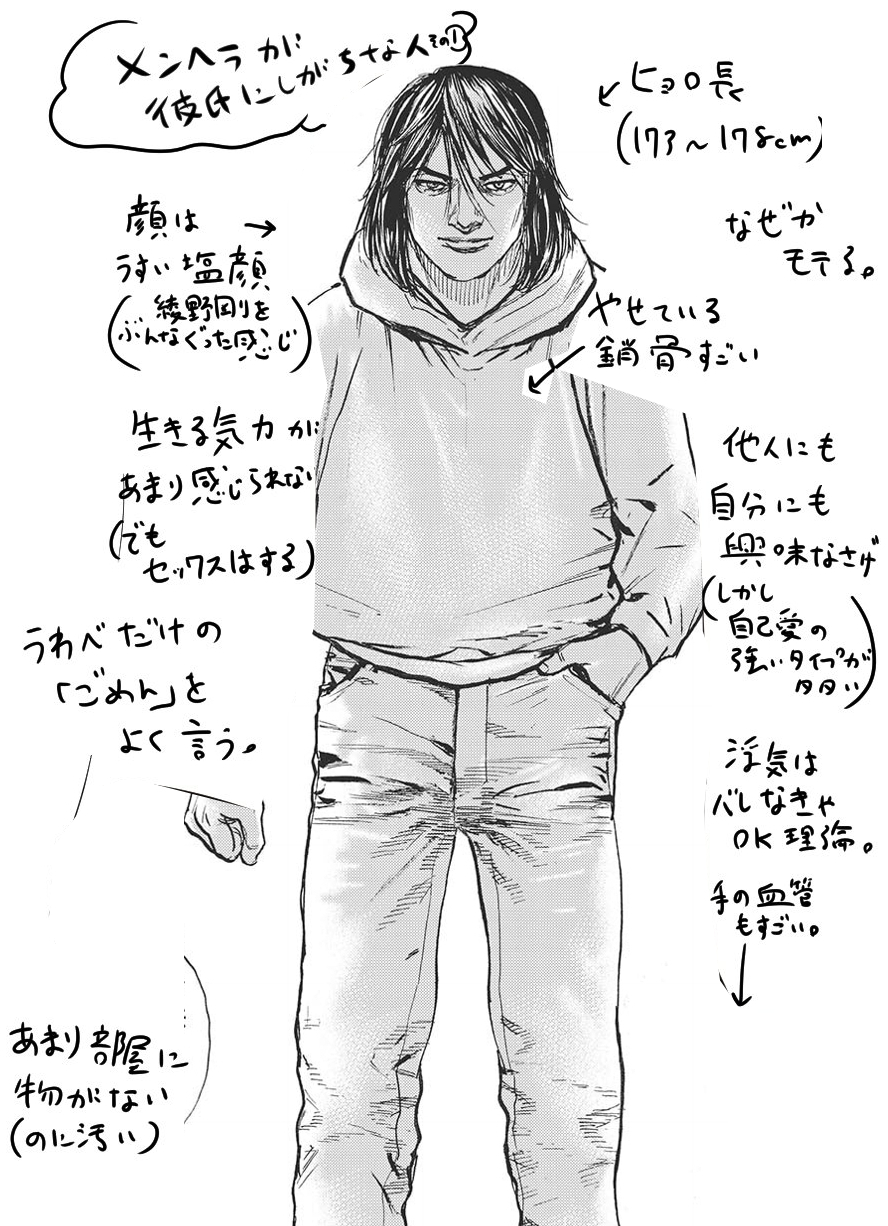 メンヘラが
彼氏にしがちな人その①
ヒョロ長
(173~178cm)
なぜか
モテる。
顔は
うすい塩顔
(綾野剛を
ぶんなぐった感じ)
やせている
鎖骨すごい
生きる気力が
あまり感じられない
(でも
セックスはする)
他人にも
自分にも
興味なさげ
(しかし
自己愛の
強いタイプが
多い)
うわべだけの
「ごめん」を
よく言う。
浮気は
バレなきゃ
OK理論。
手の血管
もすごい。
あまり部屋に
物がない
(のに汚い)